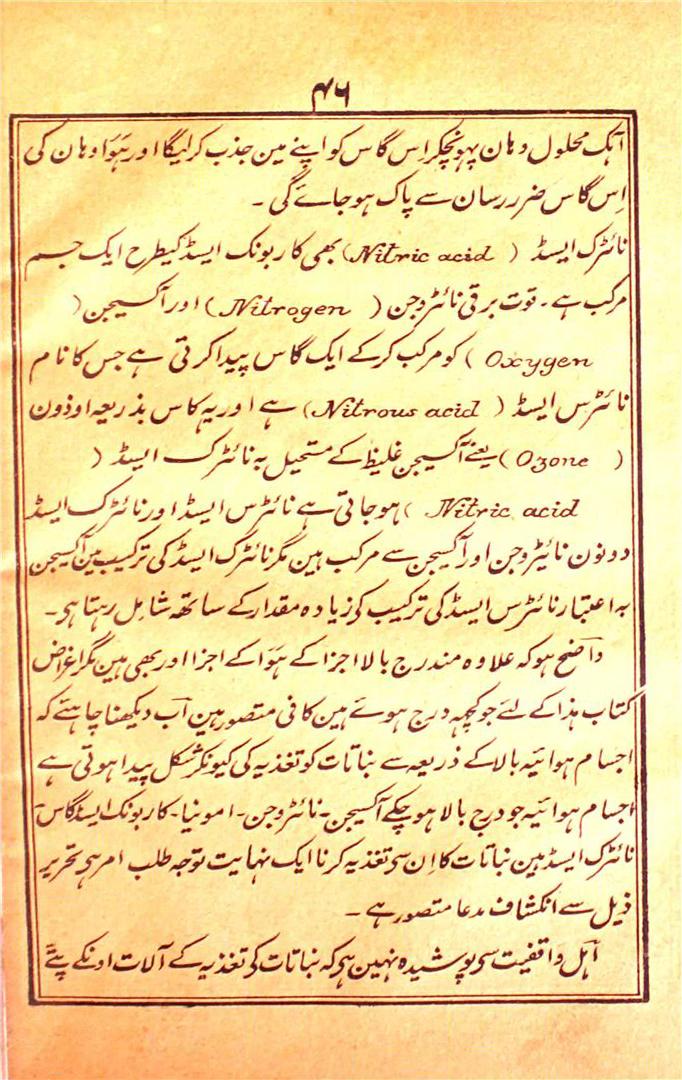 ۴۶
آہک محلول وہان پہونچکر اِس گاس کو اپنے مین جذب کرلیگا اور ہَوَا وہان کی
اِس گاس ضرر رسان سے پاک ہو جائے گی ۔
نائٹرک ایسڈ ( Nitric acid ) بھی کاربونک ایسڈ کیطرح ایک جسم
مرکب ہے ۔ قوت برقی نائٹروجن ( Nitrogen ) اور آکسیجن (
Oxygen ) کو مرکب کرکے ایک گاس پیدا کرتی ہے جس کا نام
نائٹرس ایسڈ ( Nitrous acid ) ہے اور یہ گاس بذریعہ اوذون
( Ozone ) یعنے آکسیجن غلیظ کے مستحیل بہ نائٹرک ایسڈ (
Nitric acid ) ہو جاتی ہے نائٹرس ایسڈ اور نائٹرک ایسڈ
دونون نائیٹروجن اور آکسیجن سے مرکب ہین مگر نائٹرک ایسڈ کی ترکیب مین آکسیجن
بہ اعتبار نائٹرس ایسڈ کی ترکیب کی زیادہ مقدار کے ساتھ شامل رہتا ہی ۔
واضح ہو کہ علاوہ مندرج بالا اجزا کے ہَوَا کے اجزا اور بھی ہین مگر اغراض
کتاب ہذا کے لئے جو کچھہ درج ہوئے ہین کافی متصور ہین اَب دیکھنا چاہئے کہ
اجسام ہوائیہ بالا کے ذریعہ سے نباتات کو تغذیہ کی کیونکر شکل پیدا ہوتی ہے
اجسام ہوائیہ جو درج بالا ہو چکے آکسیجن ۔ نائٹروجن ۔ امونیا ۔ کاربونک ایسڈ گاس ۔
نائٹرک ایسڈ ہین نباتات کا اِن سی تغذیہ کرنا ایک نہایت توجہ طلب امر ہی تحریر
ذیل سے انکشاف مدعا متصور ہے ۔
اَہل واقفیت سی پوشیدہ نہین ہی کہ نباتات کی تغذیہ کے آلات اونکے پتّے